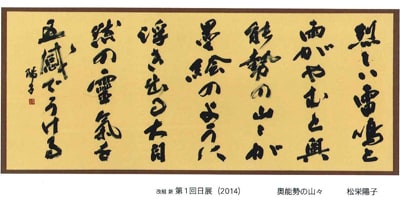 烈しい雷鳴と
雨がやむと奥
能勢の山々が
墨絵のように
浮き出る大自
然の靈氣を
五感でうける
陽子
改組 新 第1回日展 (2014) 奥能勢の山々 松栄陽子